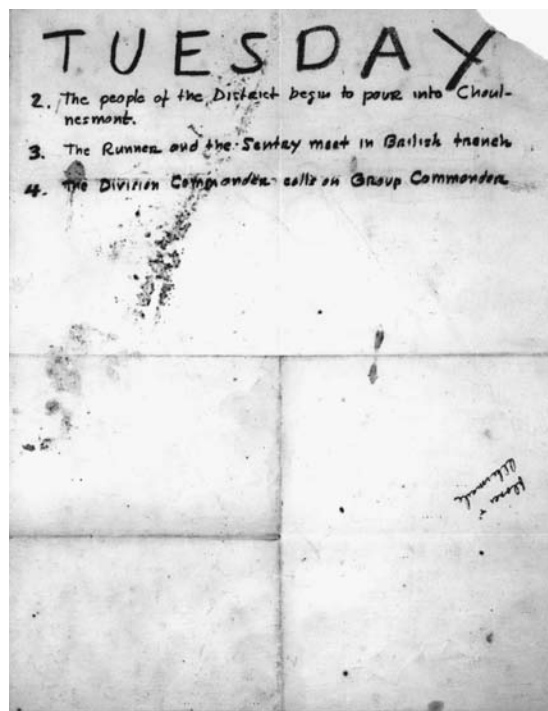 TUESDAY
2. The people of the District begin to pour into Chaul-
nesmont.
3. The Runner and the Sentry meet in British trench
4. The Division Commander calls on Group Commander